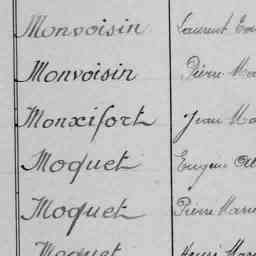 Monvoisin Laurent
Monvoisin Pierre
Monxifort Jean
Moquet Eugène
Moquet Pierre Marie
Moquet Henri